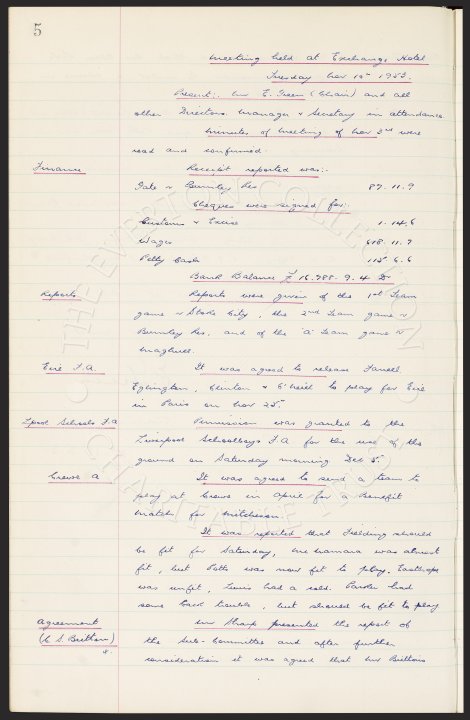 5
Meeting held at Exchange Hotel
Tuesday Nov 10th 1953.
Present:- Mr E. Green (Chair) and all
other Directors. Manager & Secretary in attendance.
Minutes of Meeting of Nov 3rd were
read and confirmed.
Finance
Receipt reported was:-
Gate v Burnley Res 87. 11. 9
Cheques were signed for:-
Customs & Excise 1. 14. 6
Wages 618. 11. 7
Petty Cash 115. 6. 6
Bank Balance £ 16,988. 9. 4 Dr
Reports
Reports were given of the 1st Team
game v Stoke City, the 2nd Team game v
Burnley Res. and of the 'A' Team game v
Maghull.
Eire F.A.
It was agreed to release Farrell,
Eglington, Clinton & O'Neill to play for Eire
in Paris on Nov 25th
Lpool Schools F.A
Permission was granted to the
Liverpool Schoolboys F.A for the use of the
ground on Saturday morning Dec 5.
Crewe A
It was agreed to send a team to
play at Crewe in April for a Benefit
Match for Mitcheson.
It was reported that Fielding should
be fit for Saturday, McNamara was almost
fit, but Potts was now fit to play. Easthope
was unfit, Lewis had a cold. Parker had
some back trouble, but should be fit to play
Agreement
(C S. Brittons)
Mr Sharp presented the report of
the Sub-Committee and after further
consideration it was agreed that Mr Brittons
THE EVERTON COLLECTION
CHARITABLE TRUST